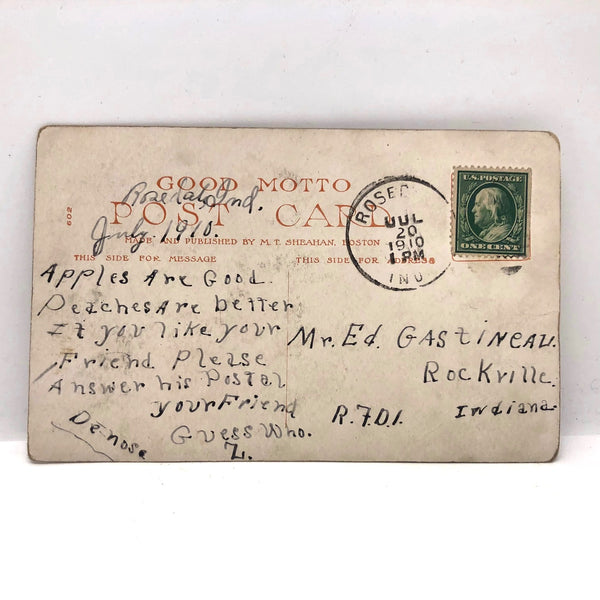 GOOD MOTTO
Rosedale Ind.
POST CARD
July 1910.
MADE AND PUBLISHED BY M. T. SHEAHAN, BOSTON
THIS SIDE FOR MESSAGE
THIS SIDE FOR ADDRESS
602
Apples Are Good.
Peaches Are better
If you like your
Friend Please
Answer his Postal
your Friend
Guess Who.
Z.
ROSED
JUL
20
1910
1 PM
IND
U.S. POSTAGE
ONE CENT
Mr. Ed. Gastineau.
Rockville.
Indiana.
R.F.D.1.